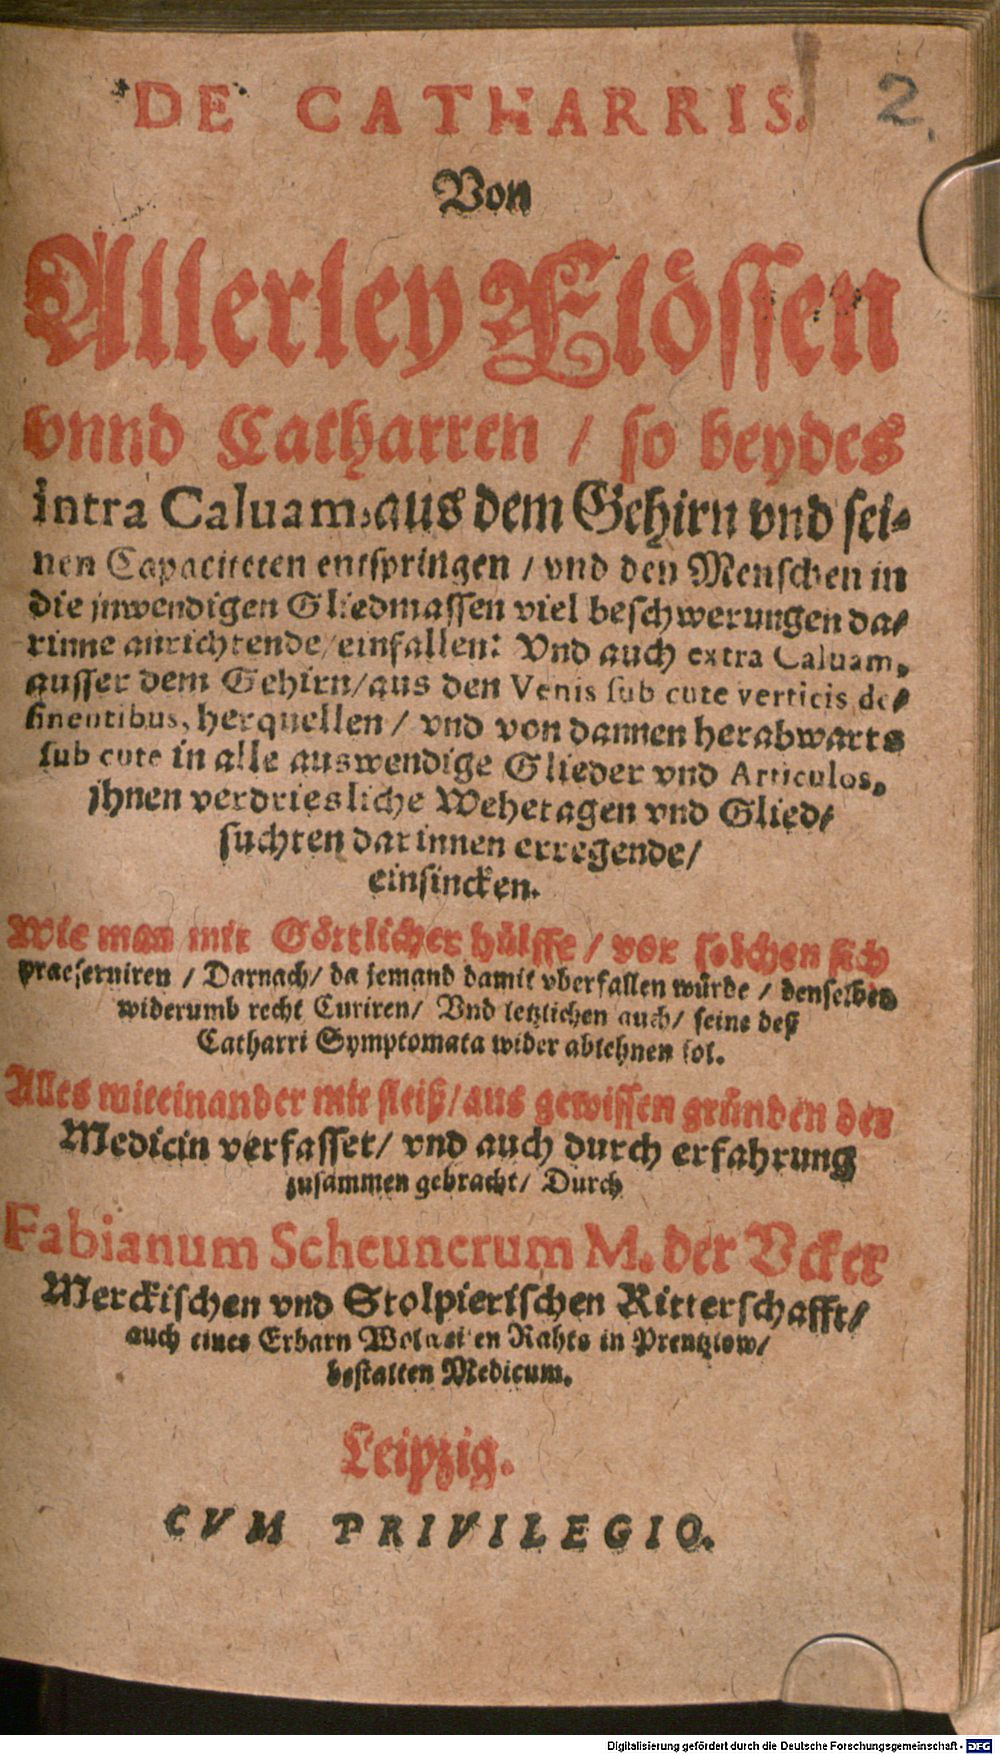 DE CATHARRIS.
2.
Von
Allerley Flössen
vnnd Catharren / so beydes
intra Caluam, aus dem Gehirn vnd sei-
nen Capaciteten entspringen / vnd den Menschen in
die jnwendigen Gliedmassen viel beschwerungen da-
rinne anrichtende / einfallen: Vnd auch extra Caluam,
ausser dem Gehirn / aus den Venis sub cute verticis de-
sinentibus, herquellen / vnd von dannen herabwarts
sub cute in alle auswendige Glieder vnd Articulos,
jhnen verdriesliche Wehetagen vnd Glied-
suchten darinnen erregende /
einsincken.
Wie man mit Göttlicher hülffe / vor solchen sich
praeseruiren / Darnach / da jemand damit vberfallen würde / denselben
widerumb recht Curiren / Vnd letzlichen auch / seine deß
Catharri Symptomata wider ablehnen sol.
Alles miteinander mit fleiß / aus gewissen gründen der
Medicin verfasset / vnd auch durch erfahrung
zusammen gebracht / Durch
Fabianum Scheunerum M. der Vcker
Merckischen vnd Stolpierischen Ritterschafft /
auch eines Erbarn Wolweisen Rahts in Prentzlow /
bestalten Medicum.
Leipzig.
CVM PRIVILEGIO.
Digitalisierung gefördert durch die Deutsche Forschungsgemeinschaft - DFG